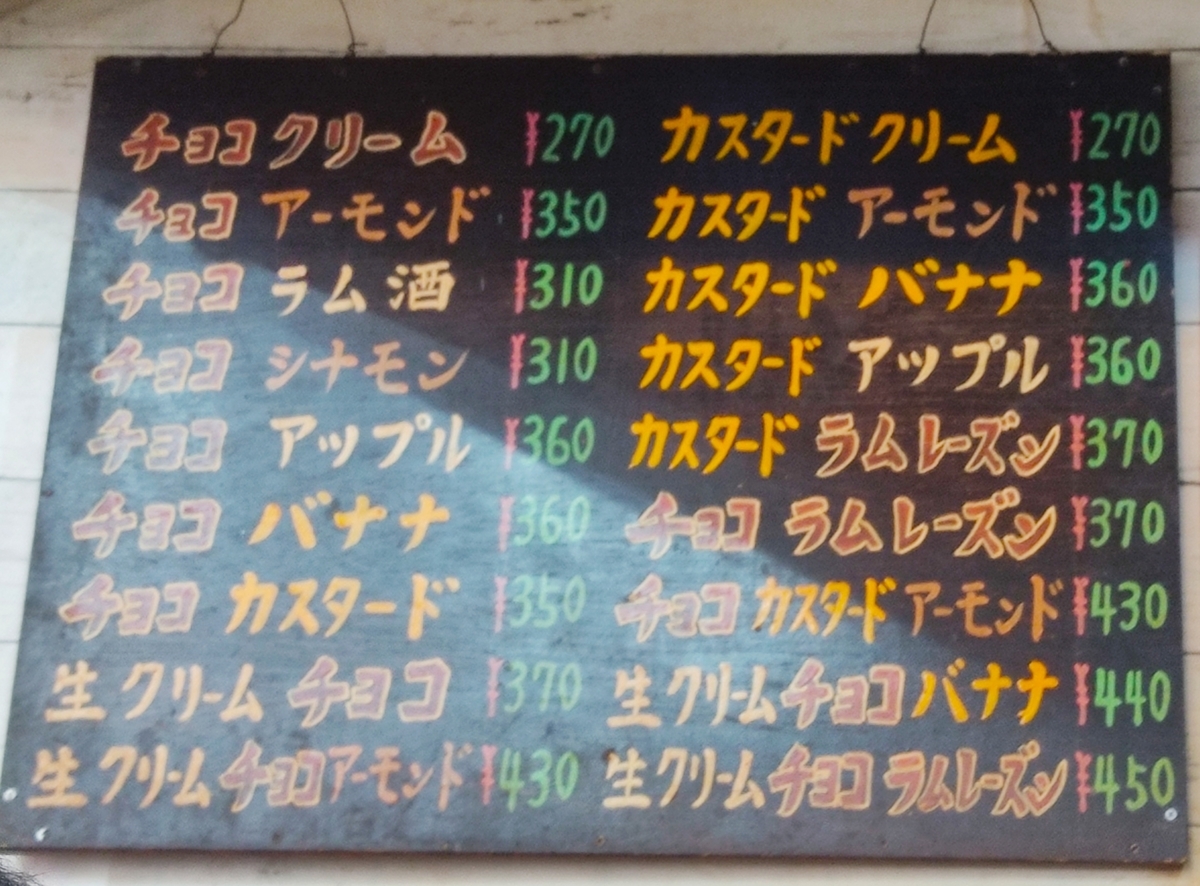 チョコ クリーム ¥270
チョコ アーモンド ¥350
チョコ ラム酒 ¥310
チョコ シナモン ¥310
チョコ アップル ¥360
チョコ バナナ ¥360
チョコ カスタード ¥350
生クリーム チョコ ¥370
生クリームチョコアーモンド ¥430
カスタードクリーム ¥270
カスタード アーモンド ¥350
カスタード バナナ ¥360
カスタード アップル ¥360
カスタード ラムレーズン ¥370
チョコ ラムレーズン ¥370
チョコ カスタード アーモンド ¥430
生クリームチョコバナナ ¥440
生クリームチョコ ラムレーズン ¥450